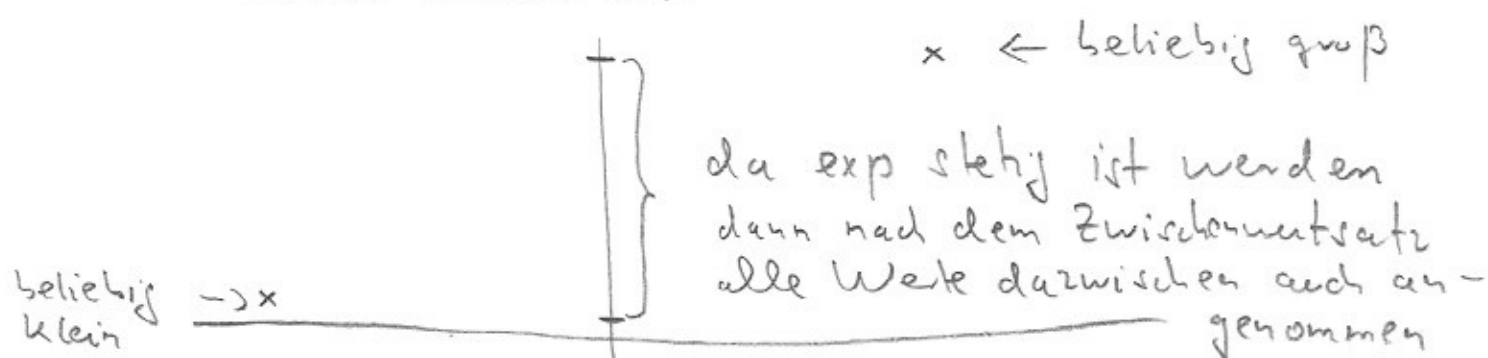 x ← beliebig groß
da exp stetig ist werden
dann nach dem Zwischenwertsatz
alle Werte dazwischen auch an-
genommen
beliebig → x
klein